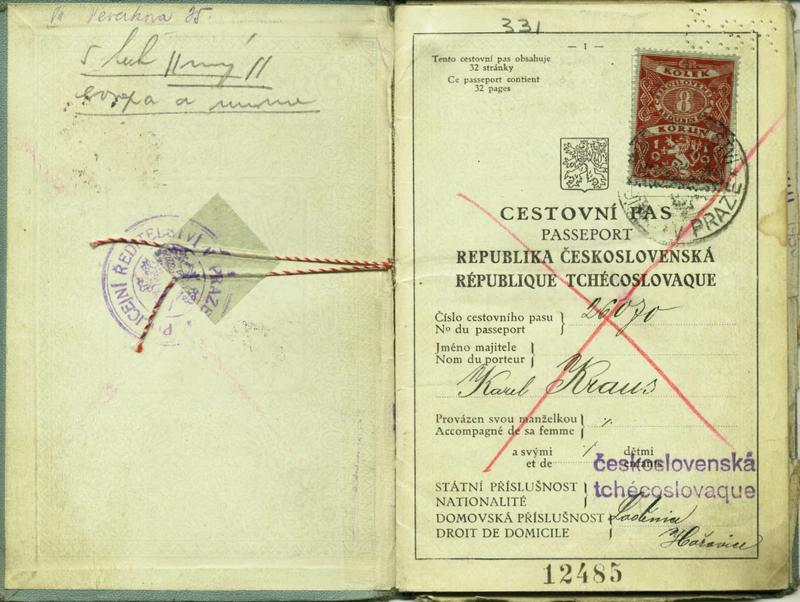 Vu Verecková 35.
5 let
Evropa a
POLICEJNÍ ŘEDITELSTVÍ V PRAZE
331
— 1 —
Tento cestovní pas obsahuje
32 stránky
Ce passeport contient
32 pages
KOLEK
8
KORUN
1919
V PRAZE
CESTOVNÍ PAS
PASSEPORT
REPUBLIKA ČESKOSLOVENSKÁ
RÉPUBLIQUE TCHÉCOSLOVAQUE
Číslo cestovního pasu
No du passeport
26070
Jméno majitele
Nom du porteur
Karel Kraus
Provázen svou manželkou
Accompagné de sa femme
a svými dětmi
et de enfants
československá
tchécoslovaque
STÁTNÍ PŘÍSLUŠNOST
NATIONALITÉ
DOMOVSKÁ PŘÍSLUŠNOST
DROIT DE DOMICILE
Hořovice
12485